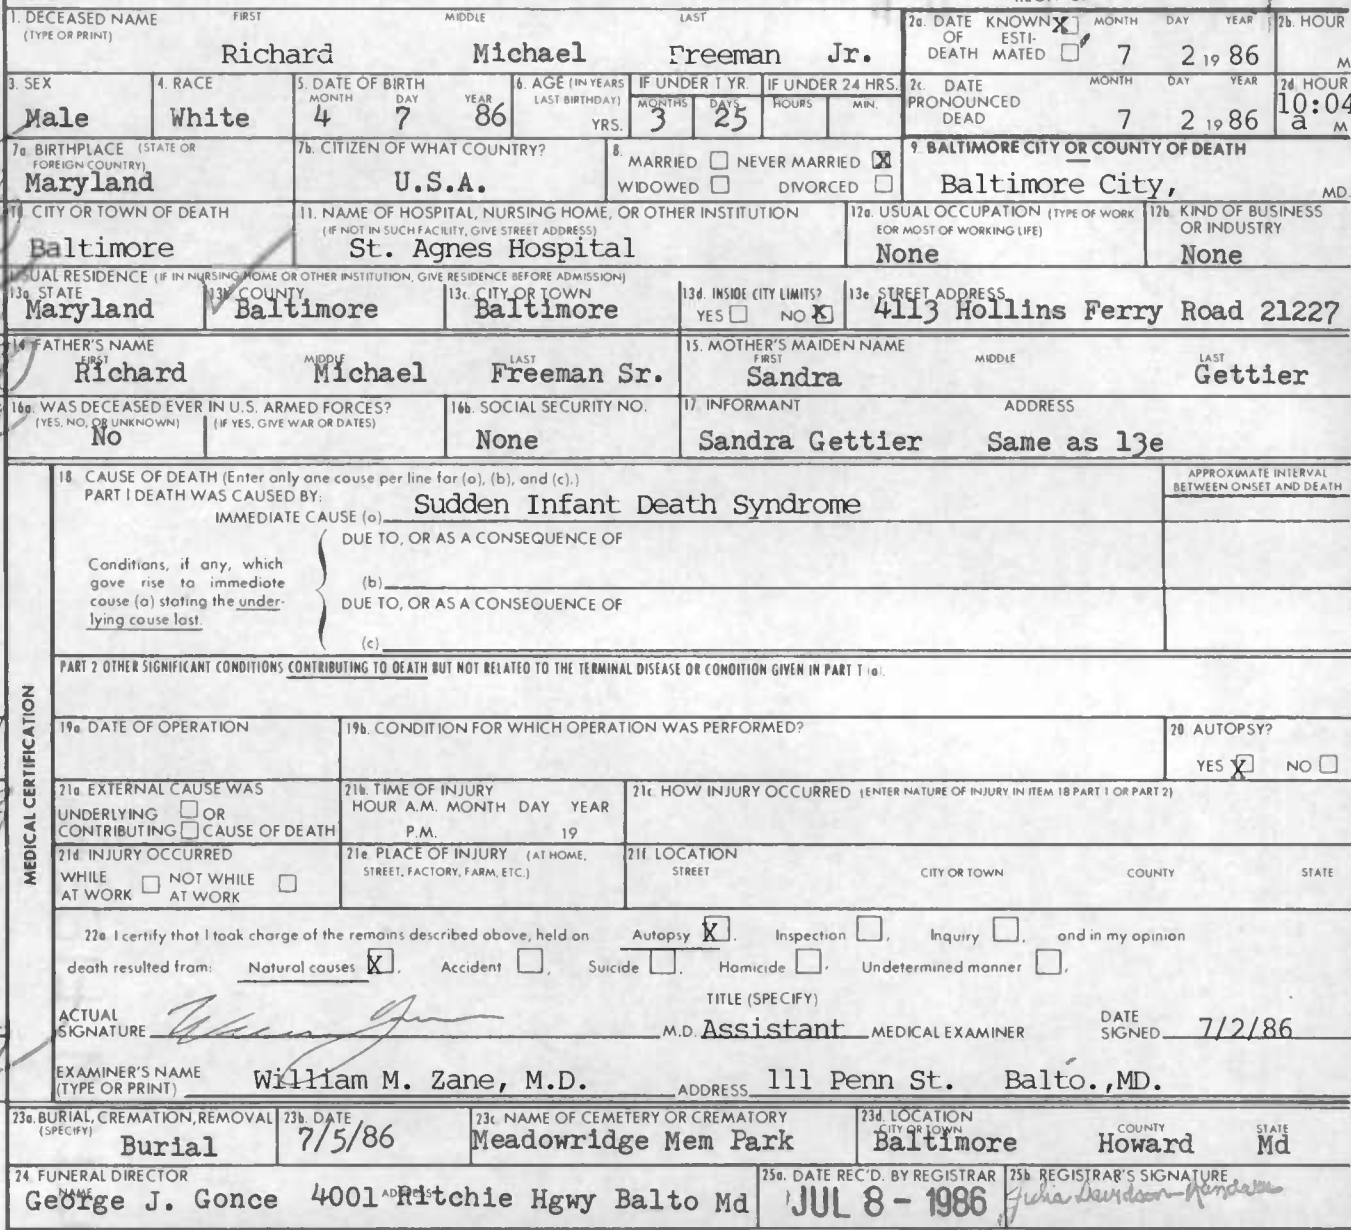 1. DECEASED NAME (TYPE OR PRINT) FIRST MIDDLE LAST
Richard Michael Freeman Jr.
2a. DATE OF DEATH KNOWN X ESTIMATED MONTH DAY YEAR
7 2 19 86
2b. HOUR M
3. SEX
Male
4. RACE
White
5. DATE OF BIRTH MONTH DAY YEAR
4 7 86
6. AGE (IN YEARS LAST BIRTHDAY) YRS.
IF UNDER 1 YR. MONTHS DAYS
3 25
IF UNDER 24 HRS. HOURS MIN.
2c. DATE PRONOUNCED DEAD MONTH DAY YEAR
7 2 19 86
2d HOUR
10:04 a M
7a. BIRTHPLACE (STATE OR FOREIGN COUNTRY)
Maryland
7b. CITIZEN OF WHAT COUNTRY?
U.S.A.
8. MARRIED NEVER MARRIED X
WIDOWED DIVORCED
9. BALTIMORE CITY OR COUNTY OF DEATH
Baltimore City, MD.
10. CITY OR TOWN OF DEATH
Baltimore
11. NAME OF HOSPITAL, NURSING HOME, OR OTHER INSTITUTION
(IF NOT IN SUCH FACILITY, GIVE STREET ADDRESS)
St. Agnes Hospital
12a. USUAL OCCUPATION (TYPE OF WORK FOR MOST OF WORKING LIFE)
None
12b. KIND OF BUSINESS OR INDUSTRY
None
USUAL RESIDENCE (IF IN NURSING HOME OR OTHER INSTITUTION, GIVE RESIDENCE BEFORE ADMISSION)
13a. STATE
Maryland
13b. COUNTY
Baltimore
13c. CITY OR TOWN
Baltimore
13d. INSIDE CITY LIMITS?
YES NO X
13e STREET ADDRESS
4113 Hollins Ferry Road 21227
14 FATHER'S NAME FIRST MIDDLE LAST
Richard Michael Freeman Sr.
15. MOTHER'S MAIDEN NAME FIRST MIDDLE LAST
Sandra Gettier
16a. WAS DECEASED EVER IN U.S. ARMED FORCES?
(YES, NO, OR UNKNOWN) (IF YES, GIVE WAR OR DATES)
No
16b. SOCIAL SECURITY NO.
None
17 INFORMANT ADDRESS
Sandra Gettier Same as 13e
MEDICAL CERTIFICATION
18 CAUSE OF DEATH (Enter only one cause per line for (a), (b), and (c).)
APPROXIMATE INTERVAL BETWEEN ONSET AND DEATH
PART I DEATH WAS CAUSED BY:
IMMEDIATE CAUSE (a) Sudden Infant Death Syndrome
DUE TO, OR AS A CONSEQUENCE OF
Conditions, if any, which
gave rise to immediate
cause (a) stating the under-
lying cause last.
(b)
DUE TO, OR AS A CONSEQUENCE OF
(c)
PART 2 OTHER SIGNIFICANT CONDITIONS CONTRIBUTING TO DEATH BUT NOT RELATED TO THE TERMINAL DISEASE OR CONDITION GIVEN IN PART 1 (a).
19a DATE OF OPERATION
19b. CONDITION FOR WHICH OPERATION WAS PERFORMED?
20 AUTOPSY?
YES X NO
21a EXTERNAL CAUSE WAS
UNDERLYING OR
CONTRIBUTING CAUSE OF DEATH
21b. TIME OF INJURY
HOUR A.M. MONTH DAY YEAR
P.M. 19
21c. HOW INJURY OCCURRED (ENTER NATURE OF INJURY IN ITEM 18 PART 1 OR PART 2)
21d INJURY OCCURRED
WHILE AT WORK NOT WHILE AT WORK
21e PLACE OF INJURY (AT HOME, STREET, FACTORY, FARM, ETC.)
21f. LOCATION
STREET CITY OR TOWN COUNTY STATE
22a I certify that I took charge of the remains described above, held on Autopsy X, Inspection , Inquiry , and in my opinion
death resulted from: Natural causes X, Accident , Suicide , Homicide , Undetermined manner ,
ACTUAL SIGNATURE M.D. TITLE (SPECIFY) Assistant MEDICAL EXAMINER DATE SIGNED 7/2/86
EXAMINER'S NAME (TYPE OR PRINT) William M. Zane, M.D. ADDRESS 111 Penn St. Balto.,MD.
23a. BURIAL, CREMATION, REMOVAL (SPECIFY)
Burial
23b. DATE
7/5/86
23c. NAME OF CEMETERY OR CREMATORY
Meadowridge Mem Park
23d. LOCATION CITY OR TOWN COUNTY STATE
Baltimore Howard Md
24. FUNERAL DIRECTOR NAME ADDRESS
George J. Gonce 4001 Ritchie Hgwy Balto Md
25a. DATE REC'D. BY REGISTRAR
JUL 8 - 1986
25b REGISTRAR'S SIGNATURE
Julia Davidson-Randall